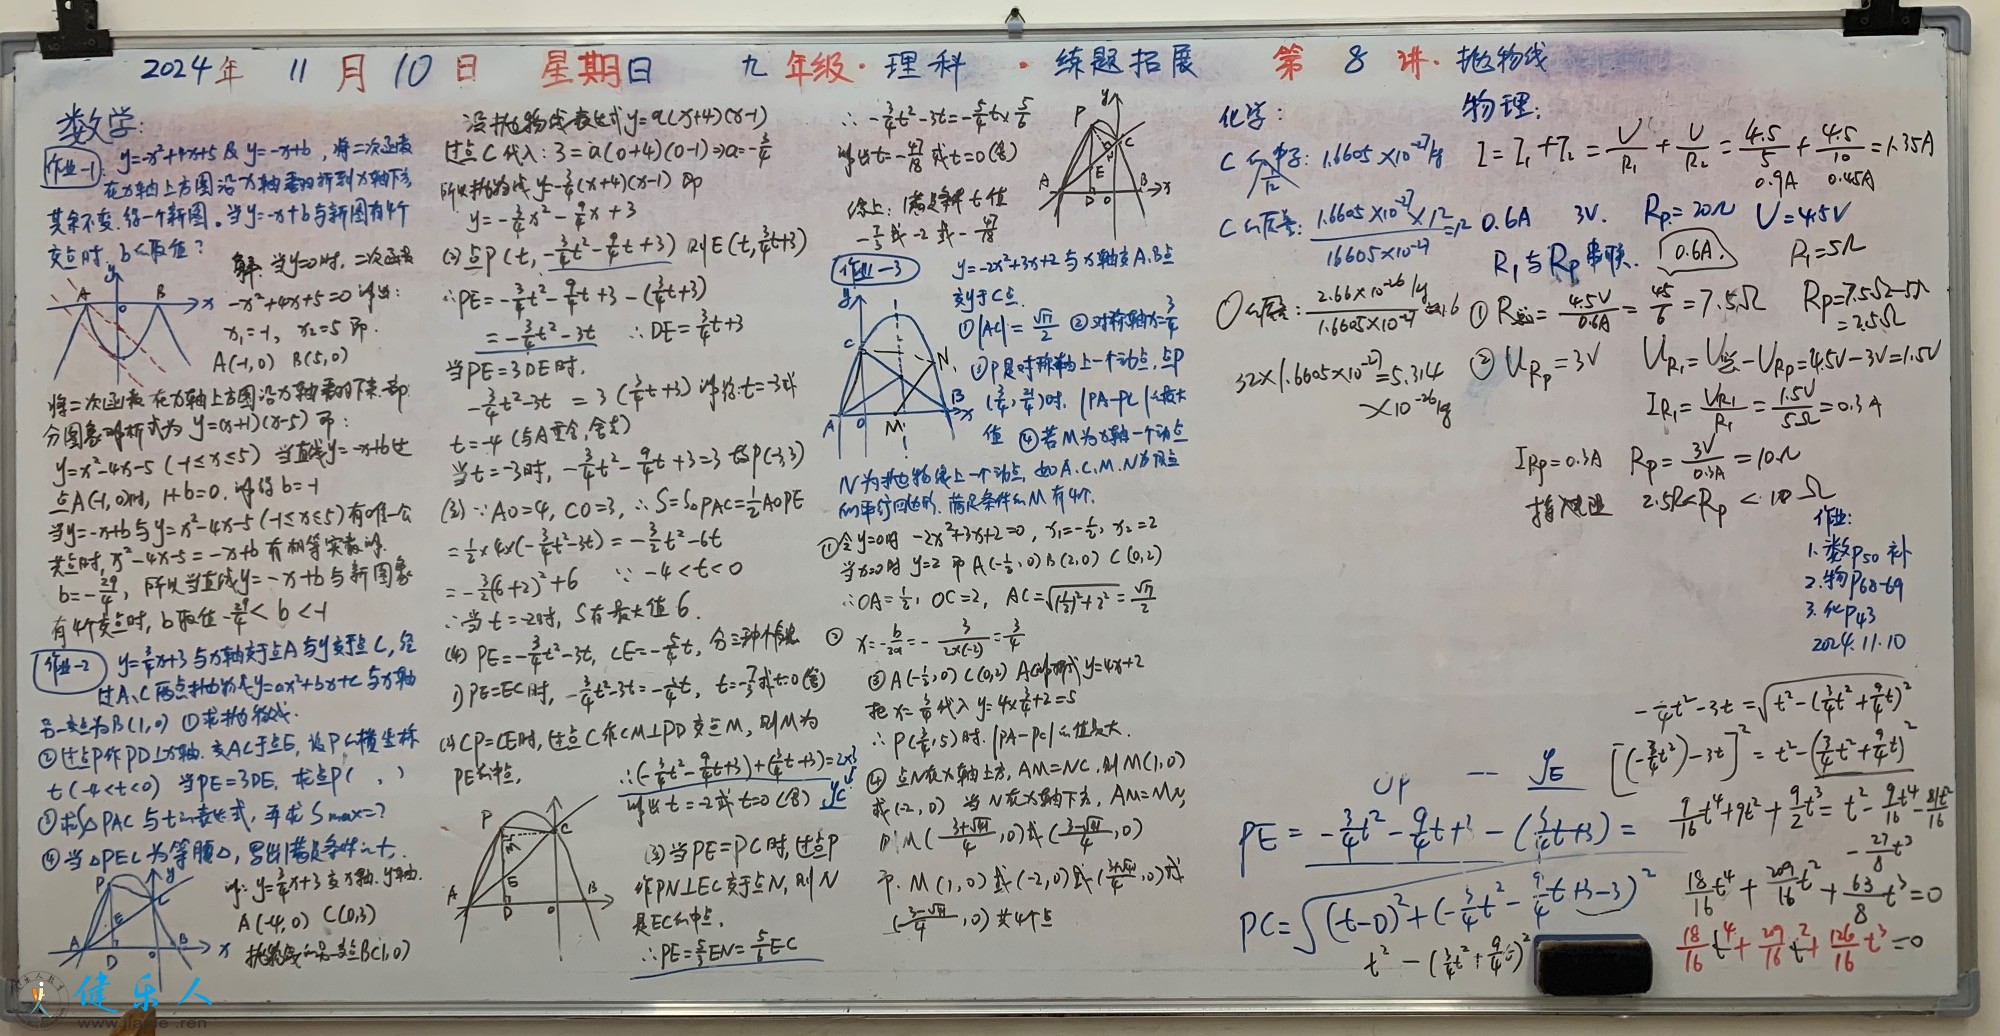 2024年 11月10日 星期日 九年级·理科·练题拓展 第8讲·抛物线
数学:
作业-1 y=-x²+4x+5 及 y=-x+b，将二次函数
在x轴上方图沿x轴翻折到x轴下方
其余不变，得一个新图。当y=-x+b与新图有4个
交点时，b的取值？
解：当y=0时，二次函数
-x²+4x+5=0 得出：
x₁=-1，x₂=5 即
A(-1,0) B(5,0)
A O B x y
将二次函数在x轴上方图沿x轴翻下来 部
分图象解析式为 y=(x+1)(x-5) 即：
y=x²-4x-5 (-1≤x≤5) 当直线y=-x+b过
点A(-1,0)时，1+b=0，得 b=-1
当y=-x+b与y=x²-4x-5 (-1≤x≤5)有唯一公
共点时，x²-4x-5=-x+b 有相等实数解
b=-29/4，所以当直线y=-x+b与新图象
有4个交点时，b取值 -29/4<b<-1
作业-2 y=3/4x+3与x轴交于点A与y交于点C，经
过A、C两点抛物线y=ax²+bx+c与x轴
另一交点为B(1,0) ①求抛物线.
②过点P作PD⊥x轴.交AC于点E，设P的横坐标
t(-4<t<0) 当PE=3DE，求点P( , )
③求S△PAC与t的表达式，再求Smax=?
④当△PEC为等腰△，写出满足条件的t.
解：y=3/4x+3交x轴.y轴.
A(-4,0) C(0,3)
抛物线的另一交点B(1,0)
P y C E A D O B x
设抛物线表达式y=a(x+4)(x-1)
过点C代入：3=a(0+4)(0-1)⇒a=-3/4
所以抛物线 y=-3/4(x+4)(x-1) 即
y=-3/4x²-9/4x+3
(2) 点P(t,-3/4t²-9/4t+3) 则E(t,3/4t+3)
∴PE=-3/4t²-9/4t+3-(3/4t+3)
=-3/4t²-3t ∴DE=3/4t+3
当PE=3DE时，
-3/4t²-3t=3(3/4t+3) 得 t=-3或
t=-4 (与A重合,舍去)
当t=-3时，-3/4t²-9/4t+3=3 故P(-3,3)
(3) ∵AO=4，CO=3，∴S=S△PAC=1/2AO·PE
=1/2×4×(-3/4t²-3t)=-3/2t²-6t
=-3/2(t+2)²+6 ∵ -4<t<0
∴当t=-2时，S有最大值6.
(4) PE=-3/4t²-3t，CE=-5/4t，分三种情况
1) PE=EC时，-3/4t²-3t=-5/4t，t=-7/3或t=0(舍)
(2) CP=CE时，过点C作CM⊥PD交点M，则M为
PE的中点，
∴(-3/4t²-9/4t+3)+(3/4t+3)=2×3
得出t=-2或t=0(舍) yC
P C M E A D O B
(3)当PE=PC时，过点P
作PN⊥EC交于点N，则N
是EC的中点，
∴PE=5/3EN=5/6EC
∴-3/4t²-3t=-5/4t×5/6
得出t=-47/18或t=0(舍)
综上：满足条件t值
-7/3或-2或-47/18
y P C E A D O B x
作业-3 y=-2x²+3x+2与x轴交A.B点
交y于C点.
①|AC|=√17/2 ②对称轴x=3/4
③P是对称轴上一个动点，点P
(3/4, )时，|PA-PC|的最大
值 ④若M为x轴一个动点
N为抛物线上一个动点，如A.C.M.N为顶点
的平行四边形，满足条件的M有4个.
y C N A O M B x
①令y=0时 -2x²+3x+2=0，x₁=-1/2，x₂=2
当x=0时 y=2 即A(-1/2,0) B(2,0) C(0,2)
∴OA=1/2，OC=2，AC=√(1/2)²+2²=√17/2
② x=-b/2a=-3/2×(-2)=3/4
③A(-1/2,0) C(0,2) AC的解析式 y=4x+2
把x=3/4代入 y=4×3/4+2=5
∴P(3/4,5)时.|PA-PC|的值最大.
④ 点N在x轴上方，AM=NC，则M(1,0)
或(-2,0) 当N在x轴下方，AM=MN
则M(3+√41/4,0)或(3-√41/4,0)
即.M(1,0)或(-2,0)或(3+√41/4,0)或
(3-√41/4,0)共4个点
化学：
1/12
C的原质:1.6605×10⁻²⁷×12/1.6605×10⁻²⁷=12
O的原质:2.66×10⁻²⁶kg/1.6605×10⁻²⁷≈16
32×1.6605×10⁻²⁷=5.314
×10⁻²⁶kg
物理：
I=I₁+I₂=U/R₁+U/R₂=4.5/5+4.5/10=1.35A
0.9A 0.45A
0.6A 3V. Rp=20Ω U=4.5V
R₁与Rp串联. 0.6A. R₁=5Ω
①R总=4.5V/0.6A=45/6=7.5Ω Rp=7.5Ω-5Ω
=2.5Ω
②URp=3V UR₁=U总-URp=4.5V-3V=1.5V
IR₁=UR₁/R₁=1.5V/5Ω=0.3A
IRp=0.3A Rp=3V/0.3A=10Ω
2.5Ω<Rp<10Ω
作业：
1.数P50补
2.物P68-69
3.化P43
2024.11.10
-3/4t²-3t=√t²-(3/4t²+9/4t)²
[(-3/4t²)-3t]²=t²-(3/4t²+9/4t)²
9/16t⁴+9t²+9/2t³=t²-9/16t⁴-81/16t²
-27/8t³
18/16t⁴+209/16t²+63/8t³=0
18/16t⁴+209/16t²+126/16t³=0
yP -- yE
PE=-3/4t²-9/4t+3-(3/4t+3)=
PC=√(t-0)²+(-3/4t²-9/4t+3-3)²
t²-(3/4t²+9/4t)²
健乐人